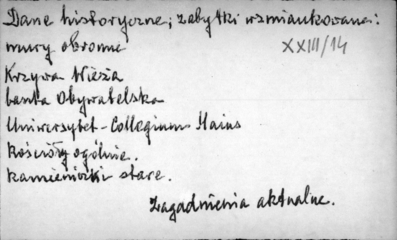 Dane historyczne; zabytki wzmiankowane:
mury obronne
XXIII/14
Krzywa Wieża
Baszta Obywatelska
Uniwersytet - Collegium Maius
kościoły ogólnie.
kamieniczki stare.
Zagadnienia aktualne.